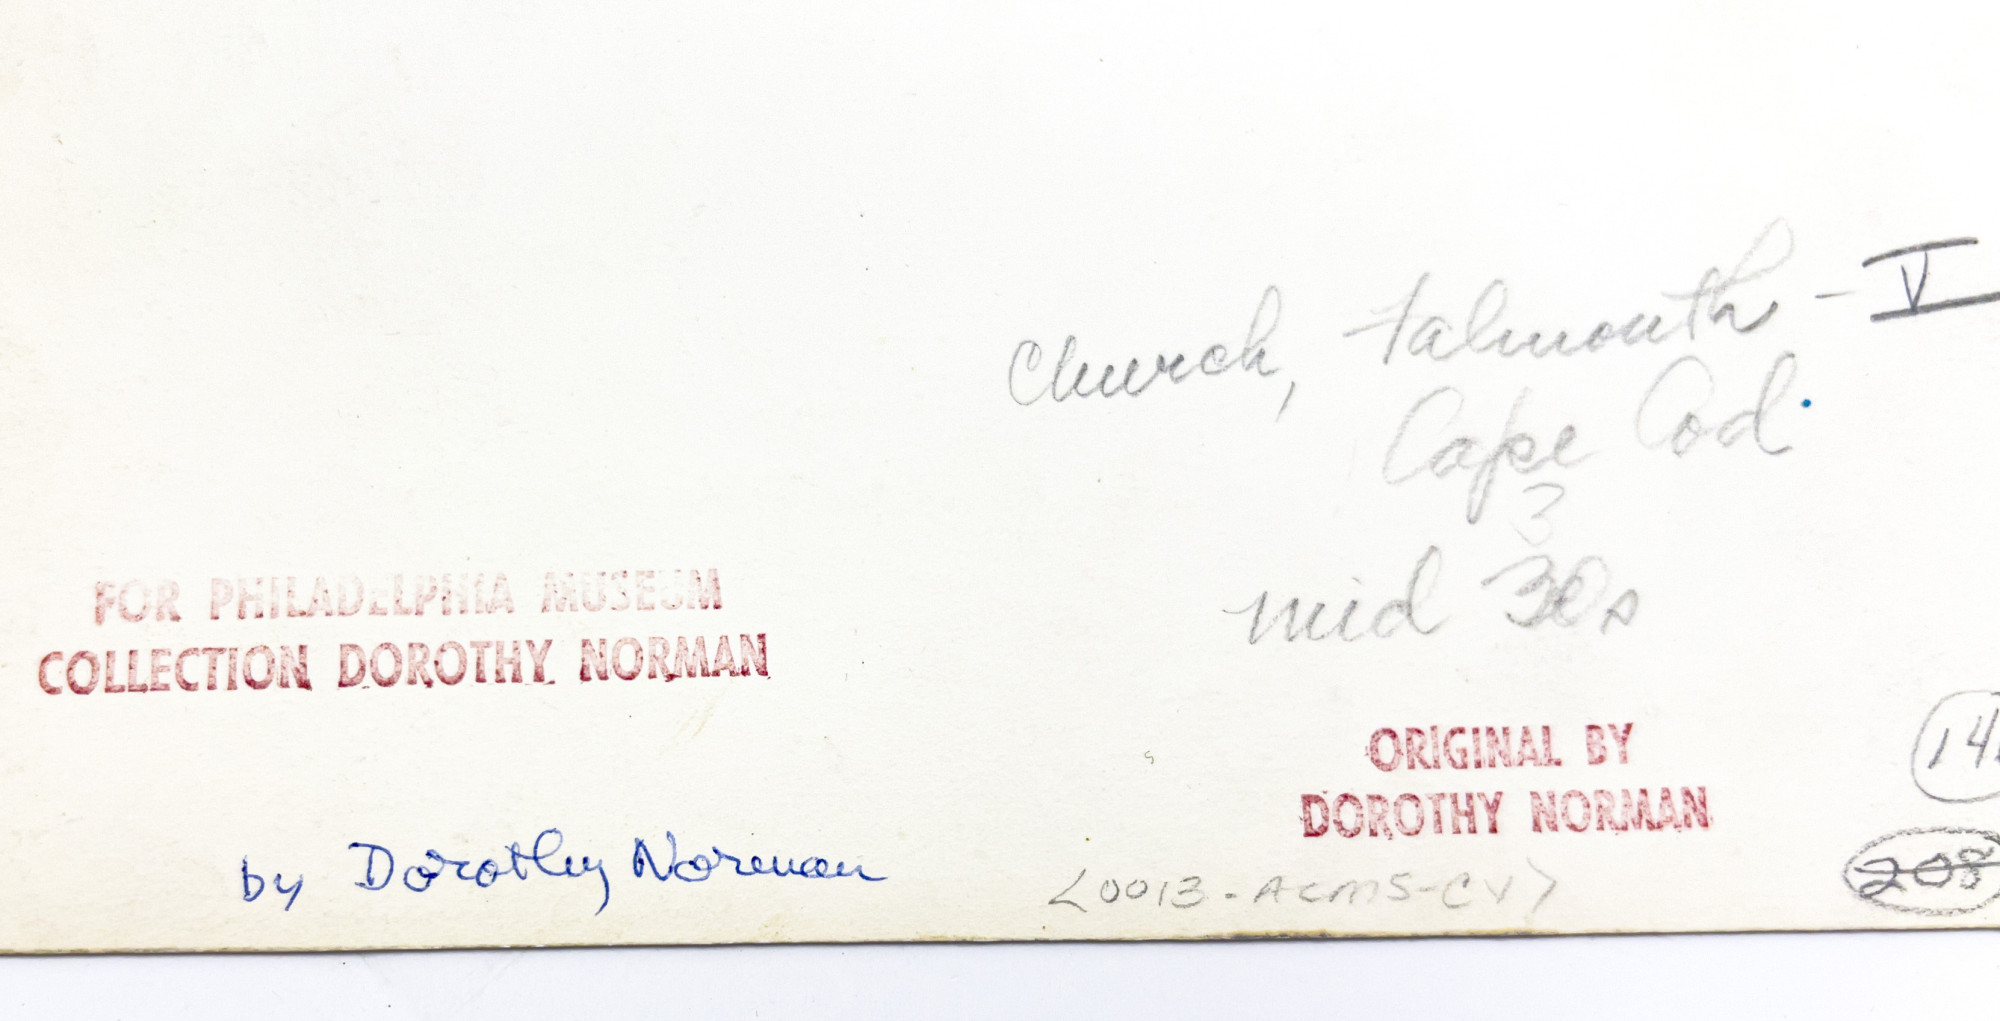 Church, Falmouth - V
Cape Cod
3
mid 30s
FOR PHILADELPHIA MUSEUM
COLLECTION DOROTHY NORMAN
ORIGINAL BY
DOROTHY NORMAN
by Dorothy Norman
208